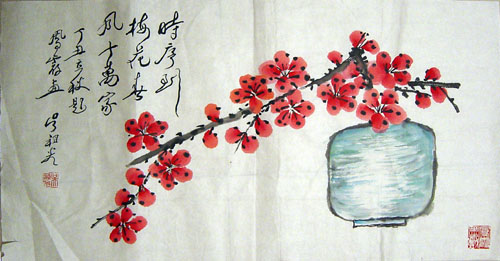 時序到
梅花春
風十萬家
丁丑立秋題
鳳霞畫
吳祖光